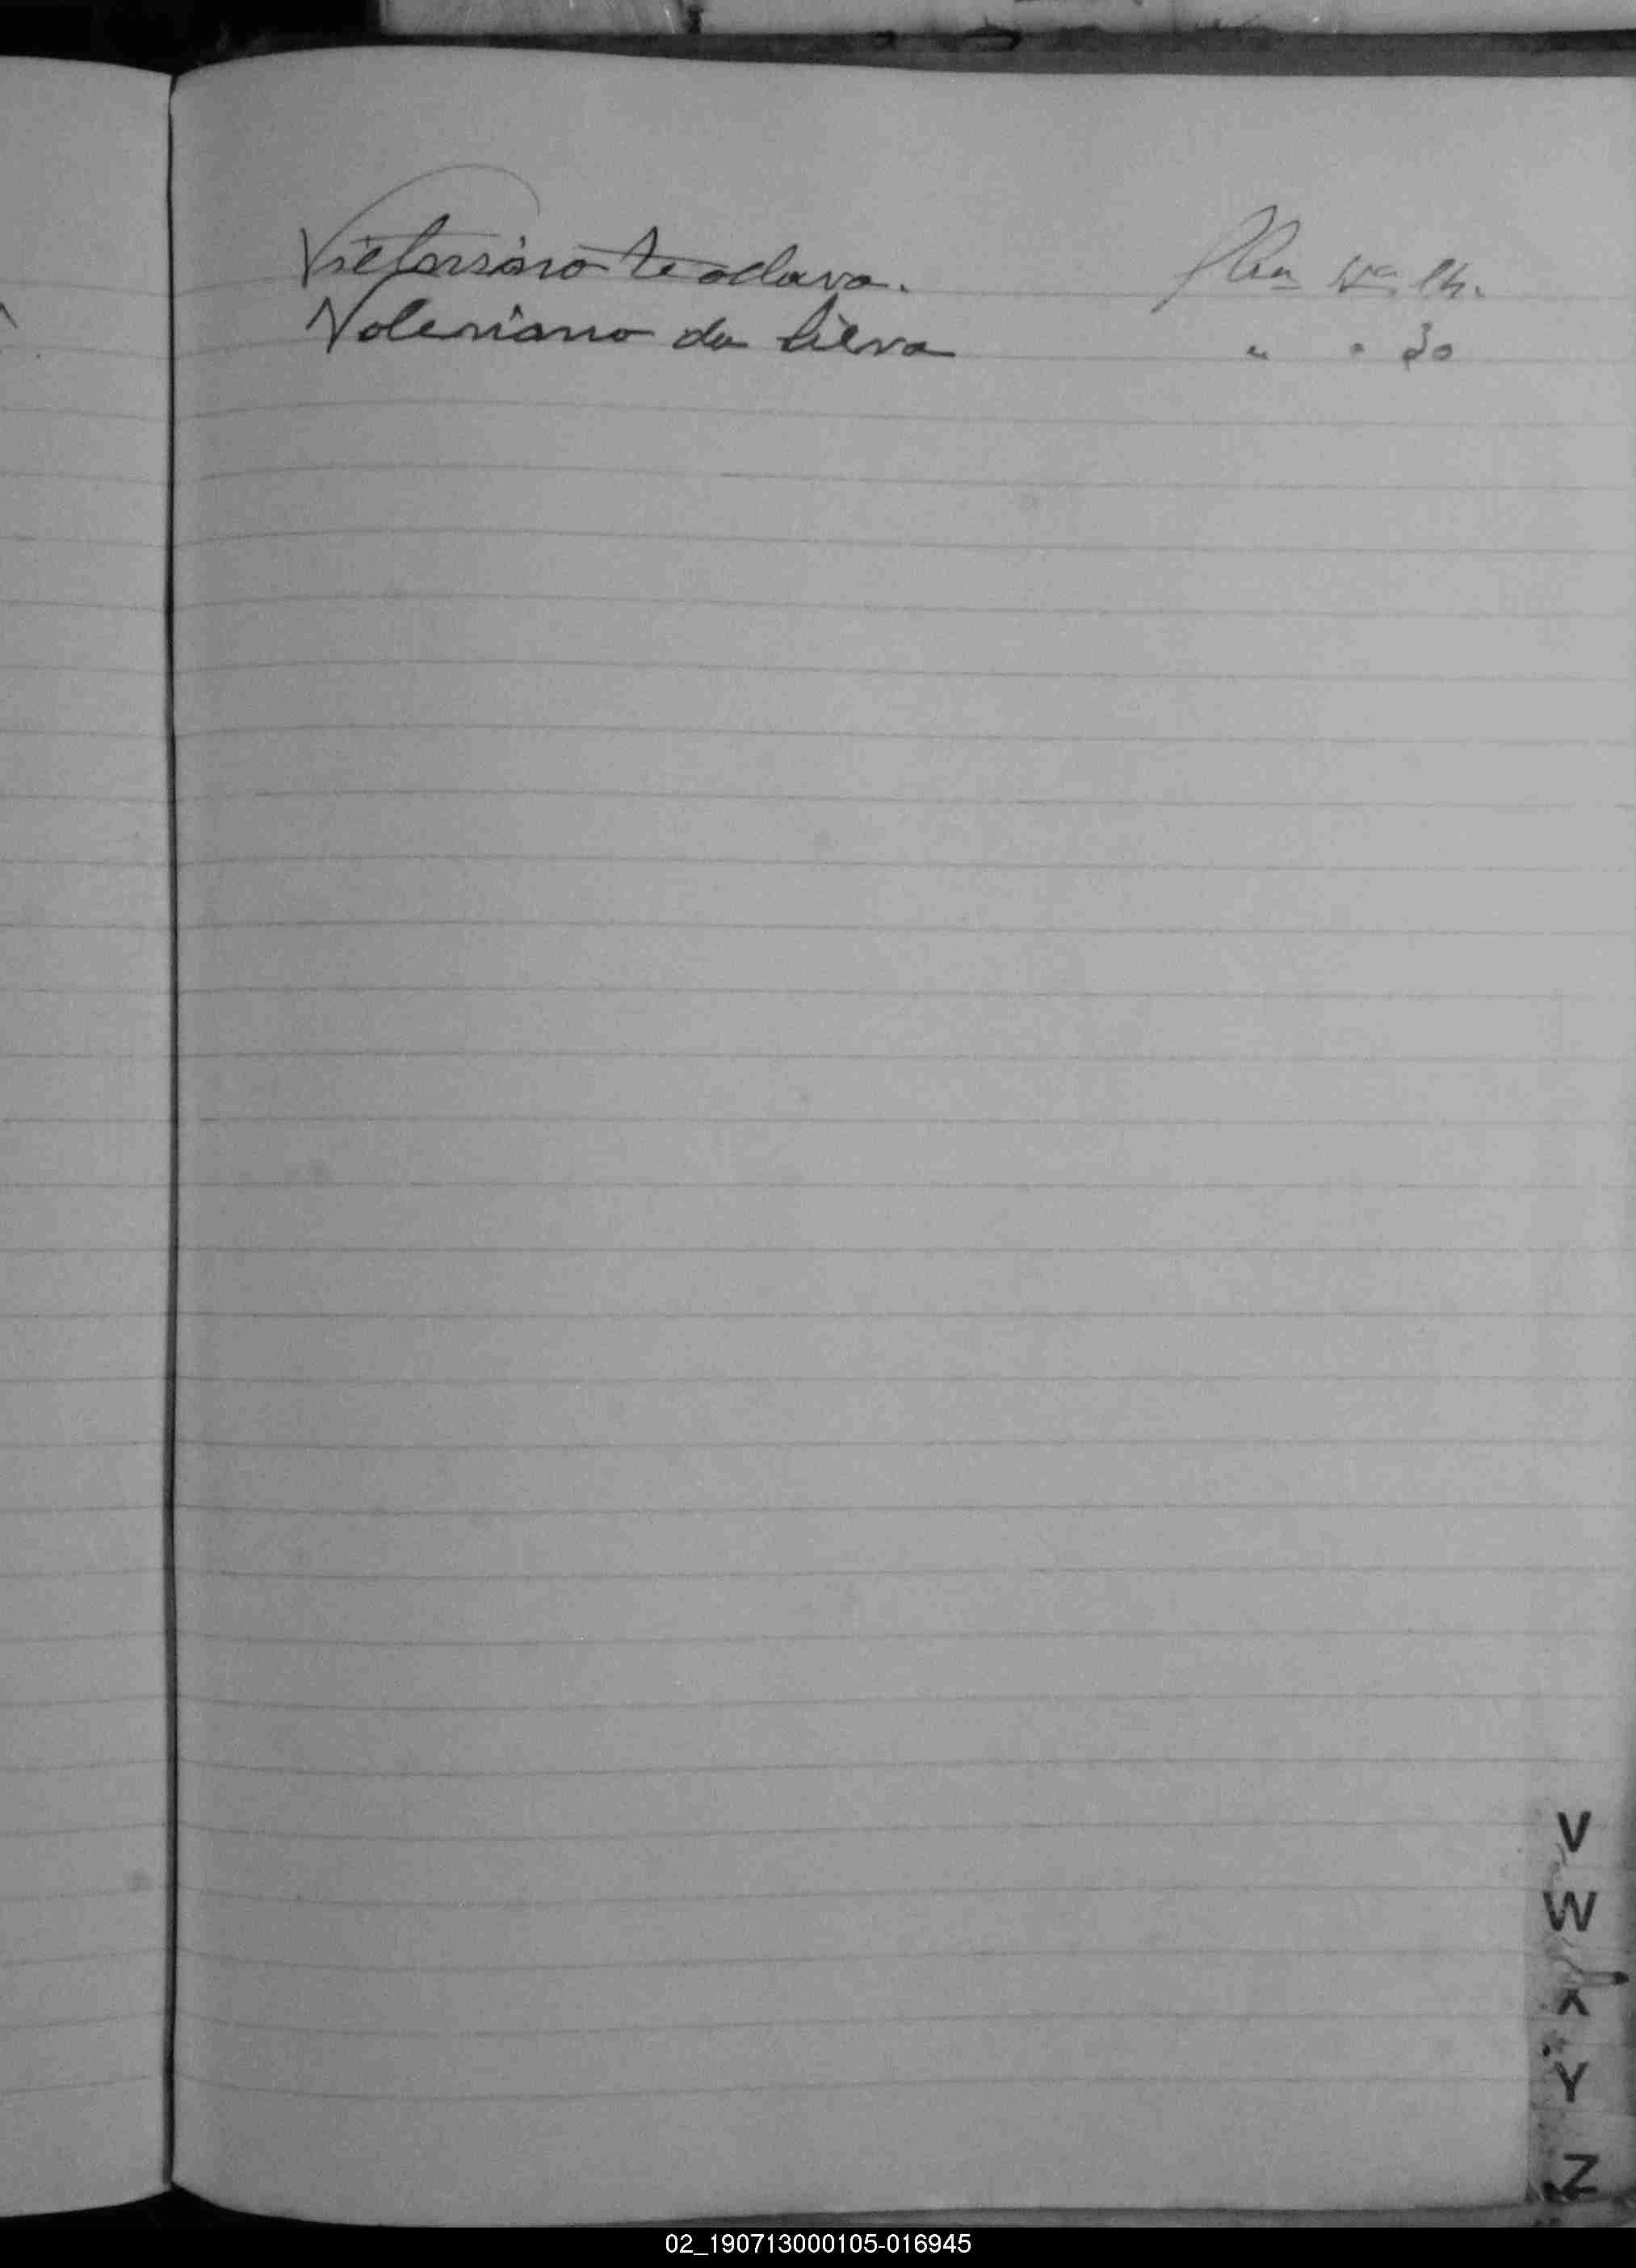 Victorsino Teodoro.
Valeriano da Silva
" " 30
V
W
X
Y
Z
02_190713000105-016945